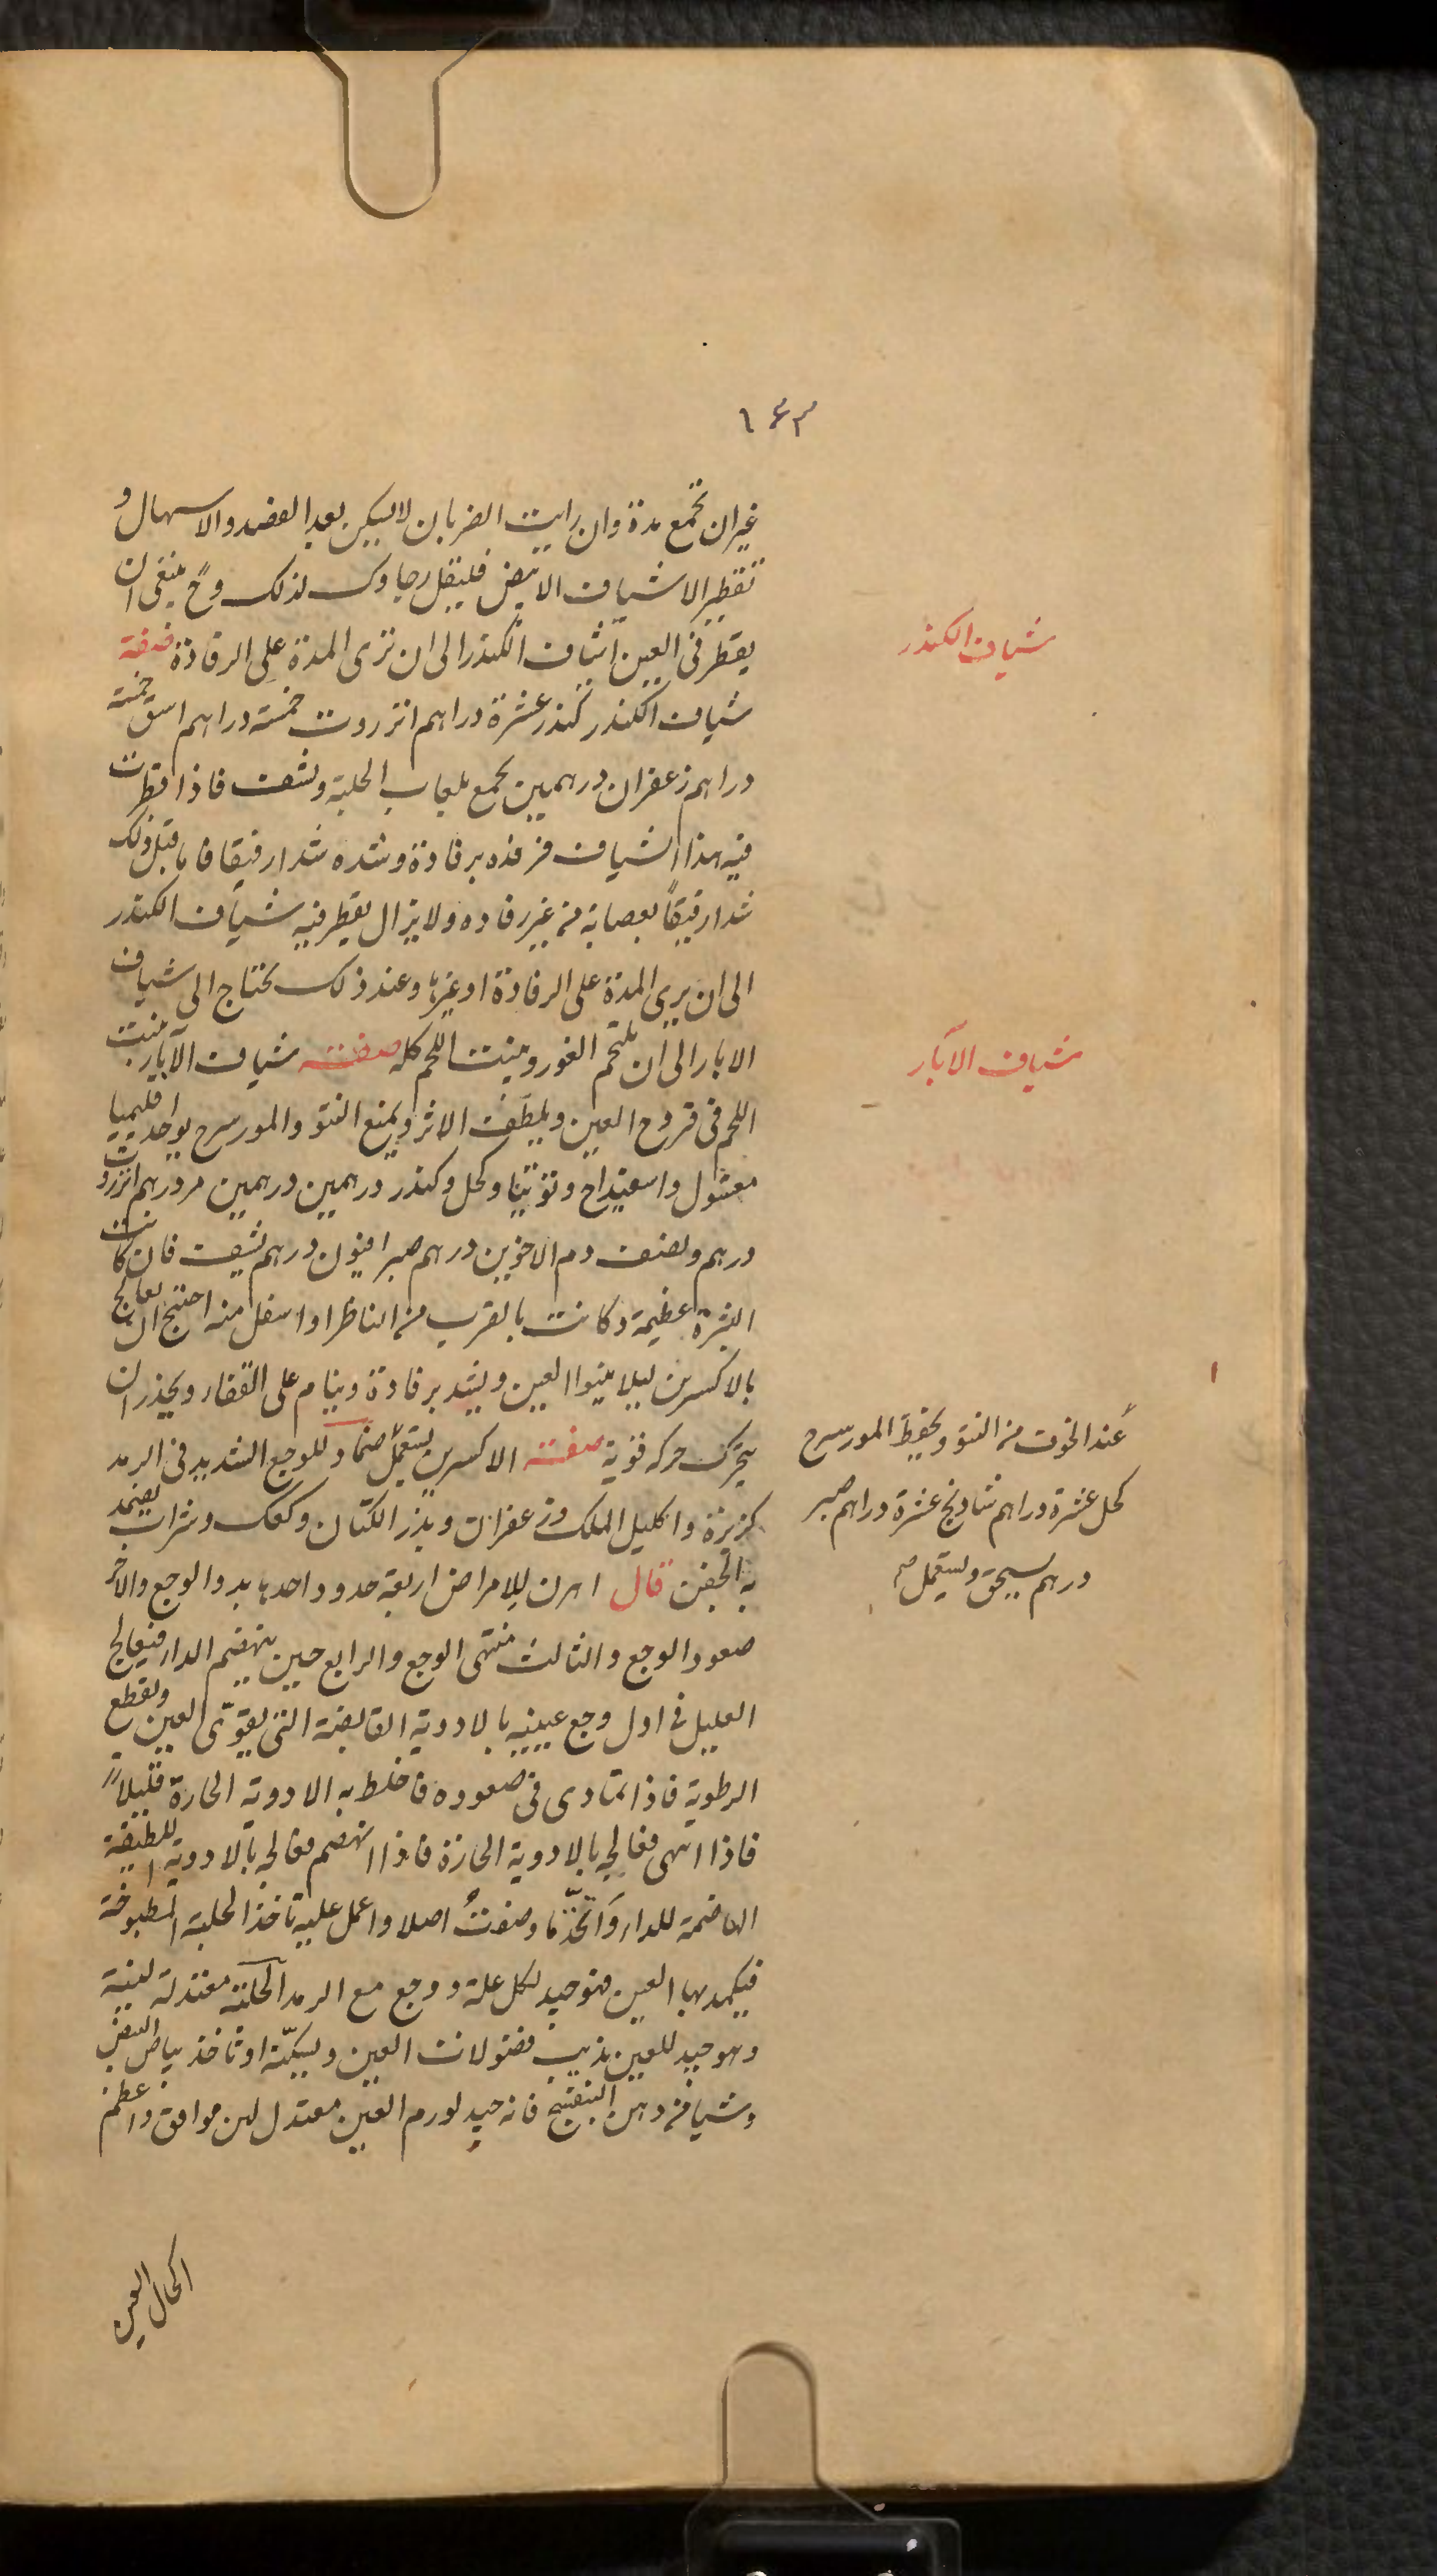 ١٤٣
غير ان تجمع مدة وان رايت الضربان لا يسكن بعد الفصد والاسهال و
تقطير الاشياف الابيض فليقل رجاوك لذلك وح ينبغى ان
يقطر فى العين اشياف الكندر الى ان ترى المدة على الرفادة صفة
شياف الكندر كندر عشرة دراهم انزروت خمسة دراهم اشق خمسة
دراهم زعفران درهمين يجمع بلعاب الحلبة ويشيف فاذا قطرت
فيه هذا الشياف فرفده برفادة وشده شدا رفيقا فاما قبل ذلك
شدا رفيقاً بعصابة من غير رفاده ولا يزال يقطر فيه شياف الكندر
الى ان يرى المدة على الرفادة او غيرها وعند ذلك يحتاج الى شياف
الابار الى ان يلتحم الغور وينبت اللحم كله صفت شياف الآبار ينبت
اللحم فى قروح العين ويلطف الاثر ويمنع النتو والمورسرج يواخد اقليميا
مغسول واسفيداج وتوتيا وكحل وكندر درهمين درهمين مر درهم انزروت
درهم ونصف دم الاخوين درهم صبر افيون درهم يشيف فان كانت
البثرة عظيمة وكانت بالقرب من الناظر او اسفل منه احتيج ان يعالج
بالاكسرين ليلا ينتوا العين ويشد برفادة وينام على القفاء ويحذر ان
يتحرك حركه قوية صفت الاكسرين يستعمل ضماد للوجع الشديد فى الرمد
كزبزة واكليل الملك وزعفران وبذر الكتان وكعك وشراب يضمد
به الجفن قال اهرن للامراض اربعة حدود احدها بدو الوجع والاخر
صعود الوجع والثالث منتهى الوجع والرابع حين ينهضم الدا فيعالج
العليل فى اول وجع عينيه بالادوية القابضة التى يقوى العين ويقطع
الرطوبة فاذا تمادى فى صعوده فاخلط به الادوية الحارة قليلاً
فاذا انتهى فعالجه بالادوية الحارة فاذا انهضم فعالجه بالادوية اللطيفة
الهاضمة للداء واتخذ ما وصفتُ اصلا واعمل عليه تاخذ الحلبة المطبوخة
فيكمد بها العين فهو جيد لكل علة ووجع مع الرمد الحلبة معتدلة لينة
وهو جيد للعين يذيب فضولات العين ويسكنه او تاخذ بياض البيض
وشيا من دهن البنفسج فانه جيد لورم العين معتدل لين موافق واعظم
اكحال العين
شياف الكندر
شياف الآبار
عند الخوف من النتو ويحفظ المورسرج
كحل عشرة دراهم شادنج عشرة دراهم صبر
درهم يسحق ويستعمل صح